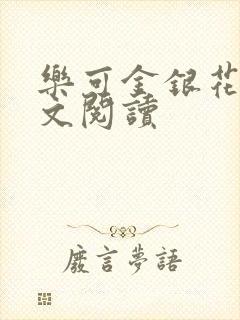 樂可金銀花
文閱讀
廢言夢語